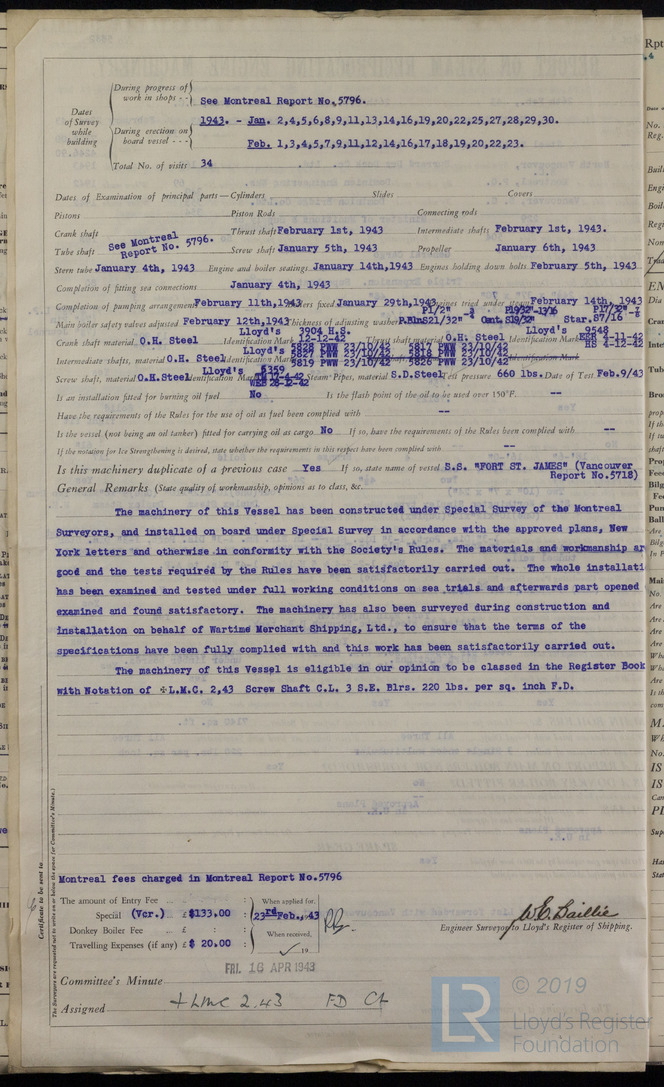 During progress of work in shops - - See Montreal Report No. 5796.
Dates of Survey while building
1943. - Jan. 2,4,5,6,8,9,11,13,14,16,19,20,22,25,27,28,29,30.
During erection on board vessel - - - Feb. 1,3,4,5,7,9,11,12,14,16,17,18,19,20,22,23.
Total No. of visits 34
Dates of Examination of principal parts — Cylinders Slides Covers
Pistons Piston Rods Connecting rods
Crank shaft Thrust shaft February 1st, 1943 Intermediate shafts February 1st, 1943.
See Montreal Report No. 5796.
Tube shaft Screw shaft January 5th, 1943 Propeller January 6th, 1943
Stern tube January 4th, 1943 Engine and boiler seatings January 14th, 1943 Engines holding down bolts February 5th, 1943
Completion of fitting sea connections January 4th, 1943
Completion of pumping arrangements February 11th, 1943 Boilers fixed January 29th, 1943 Engines tried under steam February 14th, 1943
Main boiler safety valves adjusted February 12th, 1943 Thickness of adjusting washers
Crank shaft material O.H. Steel Identification Mark Lloyd's 3904 H.S. 12-12-42 Thrust shaft material O.H. Steel Identification Mark Lloyd's 9548
Intermediate shafts, material O.H. Steel Identification Marks Lloyd's 5828 PWW 23/10/42 5817 PWW 23/10/42
5827 PWW 23/10/42 5818 PWW 23/10/42
5819 PWW 23/10/42 5826 PWW 23/10/42
Screw shaft, material O.H. Steel Identification Mark Lloyd's 5359 Steam Pipes, material S.D. Steel Test pressure 660 lbs. Date of Test Feb. 9/43
Is an installation fitted for burning oil fuel No Is the flash point of the oil to be used over 150°F. --
Have the requirements of the Rules for the use of oil as fuel been complied with --
Is the vessel (not being an oil tanker) fitted for carrying oil as cargo No If so, have the requirements of the Rules been complied with --
If the notation for Ice Strengthening is desired, state whether the requirements in this respect have been complied with --
Is this machinery duplicate of a previous case Yes If so, state name of vessel S.S. "FORT ST. JAMES" (Vancouver Report No.5718)
General Remarks (State quality of workmanship, opinions as to class, &c.
The machinery of this Vessel has been constructed under Special Survey of the Montreal
Surveyors, and installed on board under Special Survey in accordance with the approved plans, New
York letters and otherwise in conformity with the Society's Rules. The materials and workmanship ar
good and the tests required by the Rules have been satisfactorily carried out. The whole installati
has been examined and tested under full working conditions on sea trials and afterwards part opened
examined and found satisfactory. The machinery has also been surveyed during construction and
installation on behalf of Wartime Merchant Shipping, Ltd., to ensure that the terms of the
specifications have been fully complied with and this work has been satisfactorily carried out.
The machinery of this Vessel is eligible in our opinion to be classed in the Register Book
with Notation of +L.M.C. 2,43 Screw Shaft C.L. 3 S.E. Blrs. 220 lbs. per sq. inch F.D.
Certificate to be sent to
(The Surveyors are requested not to write on or below the space for Committee's Minute.)
Montreal fees charged in Montreal Report No.5796
The amount of Entry Fee .. £ : : When applied for,
Special (Ver.) £ $133.00 : 23rd Feb., 43
Donkey Boiler Fee .. £ : : When received,
Travelling Expenses (if any) £ $ 20.00 : 19
W.E. Baillie
Engineer Surveyor to Lloyd's Register of Shipping.
FRI. 16 APR 1943
Committee's Minute
Assigned + LMC 2.43 FD CL
© 2019
LR
Lloyd's Register
Foundation